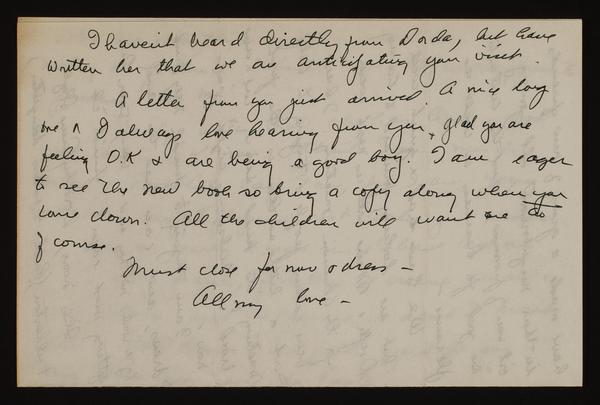 I haven't heard directly from Dorda, but have
written her that we are anticipating your visit.
A letter from you just arrived. A nice long
one & I always love hearing from you, glad you are
feeling O.K & are being a good boy. I am eager
to see the new book so bring a copy along when you
come down. All the children will want one too
of course.
Must close for now & dress –
All my love –